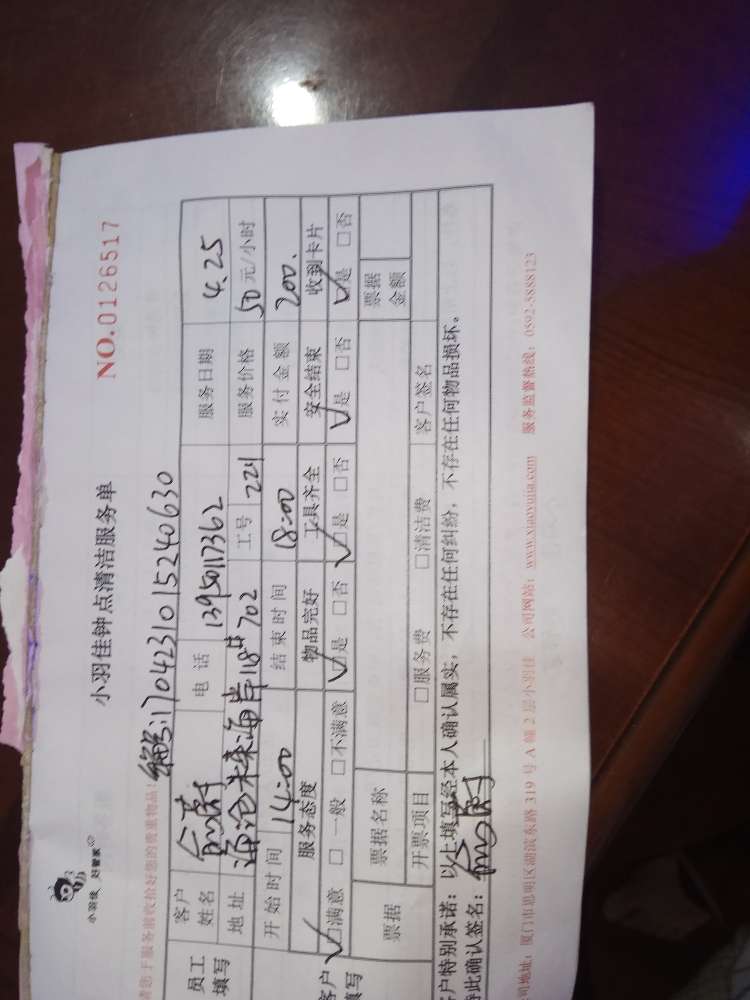 小羽佳 好管家
小羽佳钟点清洁服务单
NO.0126517
请您于服务前收拾好您的贵重物品!
编号:1704231015240630
员工填写
客户姓名 电话 13950117362 服务日期 4.25
地址 海沧未来海岸18# 702 工号 2211 服务价格 50元/小时
开始时间 14:00 结束时间 18:00 实付金额 200.
客户填写
服务态度 物品完好 工具齐全 安全结束 收到卡片
☑满意 □一般 □不满意 ☑是 □否 ☑是 □否 ☑是 □否 ☑是 □否
票据 票据名称 票据金额
开票项目 □服务费 □清洁费 客户签名
客户特别承诺:以上填写经本人确认属实,不存在任何纠纷,不存在任何物品损坏。
特此确认签名:
公司地址:厦门市思明区湖滨东路319号A幢2层小羽佳 公司网站:www.xiaoyujia.com 服务监督热线:0592-5888123